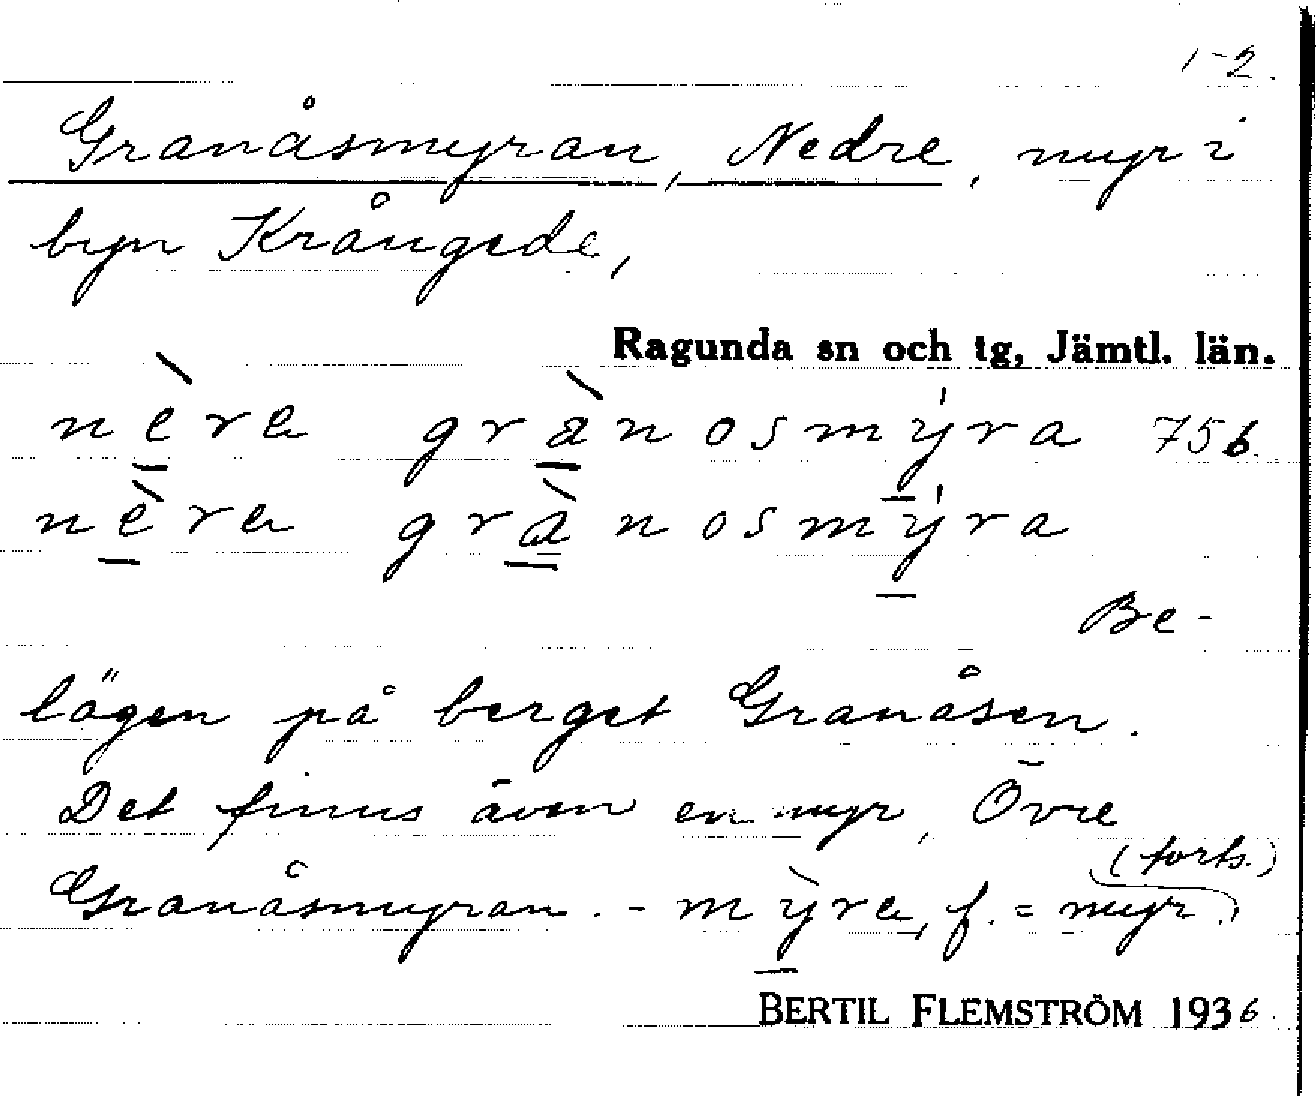 1-2.
Granåsmyran, Nedre, myr i
byn Krångede,
Ragunda sn och tg, Jämtl. län.
nèra grànosmýra 75b.
nèra grànosmýra
Be-
lägen på berget Granåsen.
Det finns även en myr, Övre
(forts.)
Granåsmyran. - mỳra, f. = myr.
BERTIL FLEMSTRÖM 1936